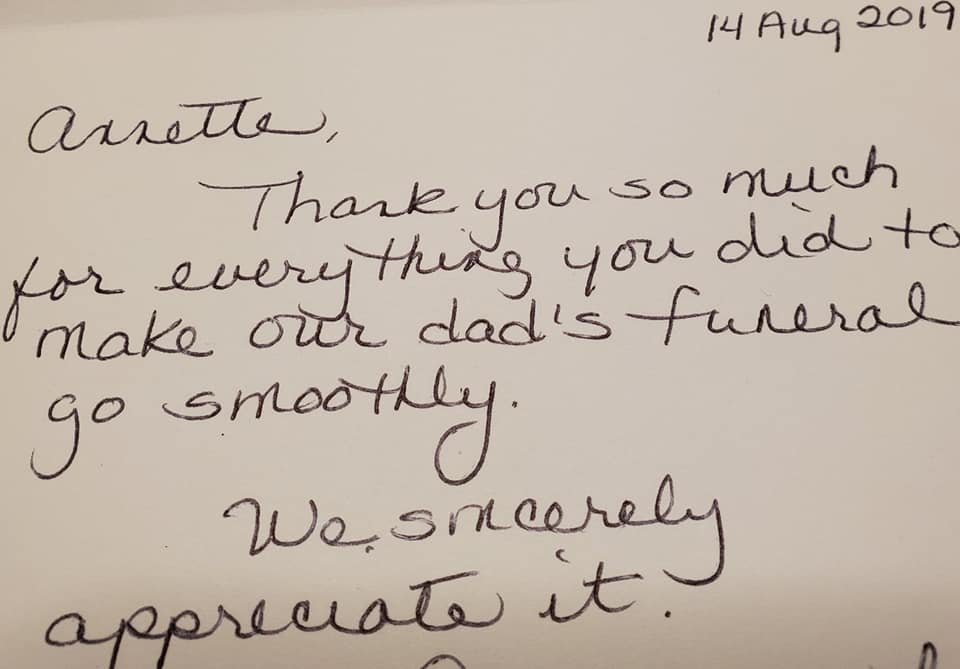 14 Aug 2019
Annette,
Thank you so much
for everything you did to
make our dad's funeral
go smoothly.
We sincerely
appreciate it.